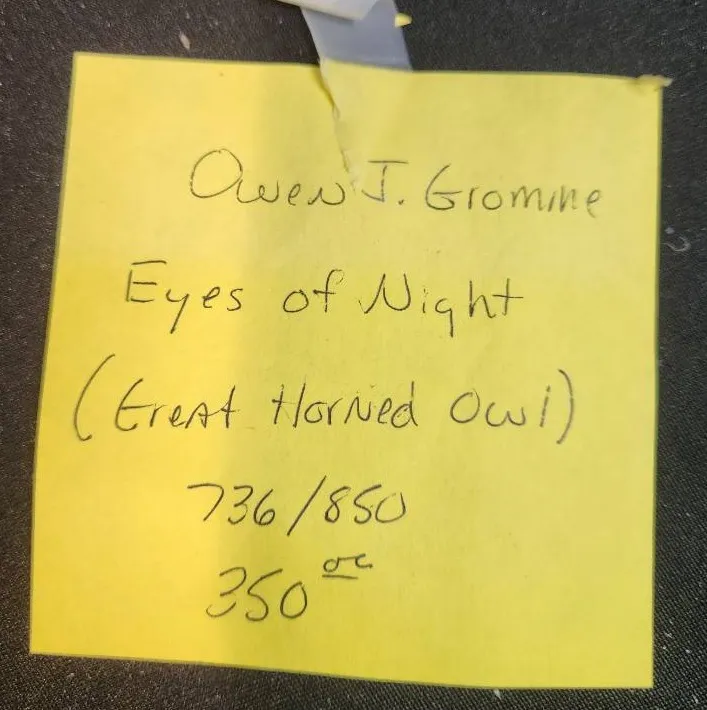 Owen J. Gromme
Eyes of Night
(Great Horned Owl)
736/850
350 00